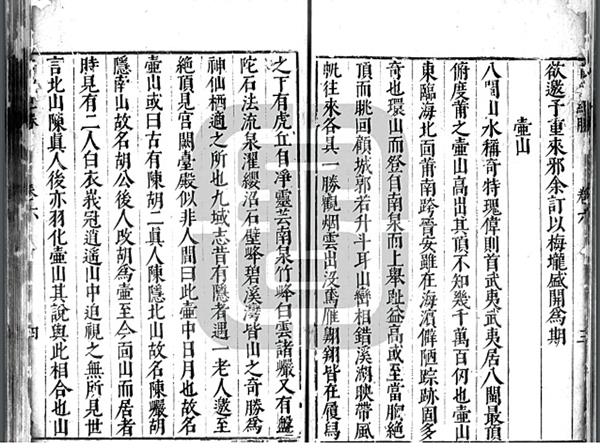 卷六
三
欲邀予重來邪余訂以梅壠盛開爲期
壺山
八閩山水稱奇特瑰偉則首武夷武夷居八閩最頂
俯度莆之壺山高出其頂不知幾千萬百仞也壺山
東臨海北面莆南跨晉安雖在海濱僻陋踪跡固多
奇也環山而登自南泉而上舉趾益高或至當絶
頂而眺回顧城郭若升斗耳山巒相錯溪湖映帶風
帆往來各具一勝觀烟雲出没鳶雁翱翔皆在履舄
之下有虎丘自凈靈芸南泉竹峰白雲諸巖又有盤
陀石法流泉濯纓沼石壁峰碧溪灣皆山之奇勝爲
神仙棲遁之所也九域志昔有隱者遇一老人邀至
絶頂見宮闕臺殿似非人間曰此壺中日月也故名
壺山或曰古有陳胡二真人陳隱北山故名陳巖胡
隱南山故名胡公後人改胡爲壺至今面山而居者
時見有二人白衣峩冠逍遥山中迫視之無所見世
言北山陳真人後亦羽化壺山其說與此相合也山
卷六
四